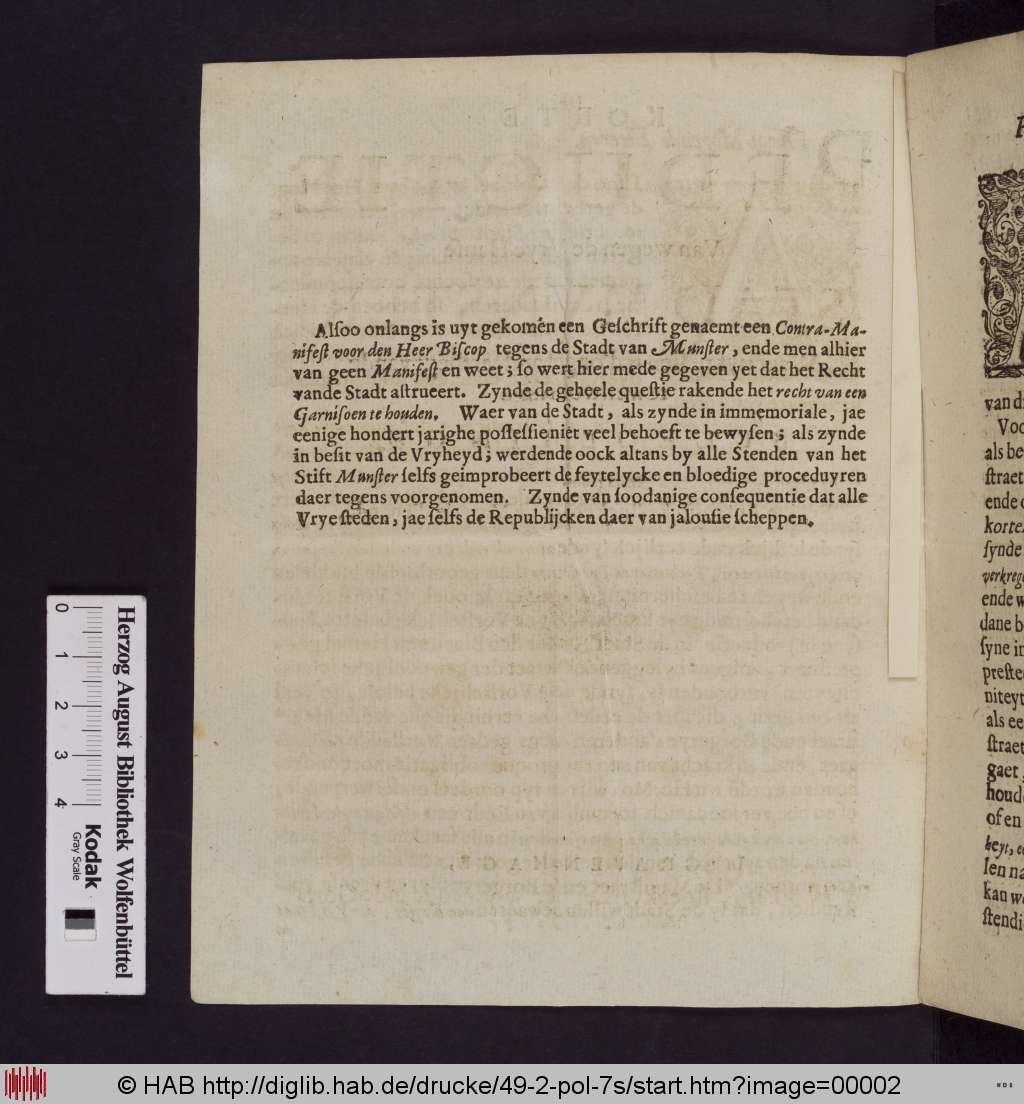 Alſoo onlangs is uyt gekomen een Geſchrift genaemt een Contra-Ma-
nifeſt voor den Heer Biſcop tegens de Stadt van Munſter, ende men alhier
van geen Manifeſt en weet; ſo wert hier mede gegeven yet dat het Recht
vande Stadt aſtrueert. Zynde de geheele queſtie rakende het recht van een
Garniſoen te houden. Waer van de Stadt, als zynde in immemoriale, jae
eenige hondert jarighe poſſeſſie niet veel behoeft te bewyſen; als zynde
in beſit van de Vryheyd; werdende oock altans by alle Stenden van het
Stift Munſter ſelfs geimprobeert de feytelycke en bloedige proceduyren
daer tegens voorgenomen. Zynde van ſoodanige conſequentie dat alle
Vrye ſteden, jae ſelfs de Republijcken daer van jalouſie ſcheppen.
van d
Voo
als be
ſtraet
ende
korte
ſynde
verkreg
ende w
dane b
ſyne in
preſte
niteyt
als ee
ſtraet
gaet,
houd
of en
heyt, e
len na
kan w
ſtendi
0 1 2 3 4
Herzog August Bibliothek Wolfenbüttel
Kodak
Gray Scale
© HAB http://diglib.hab.de/drucke/49-2-pol-7s/start.htm?image=00002